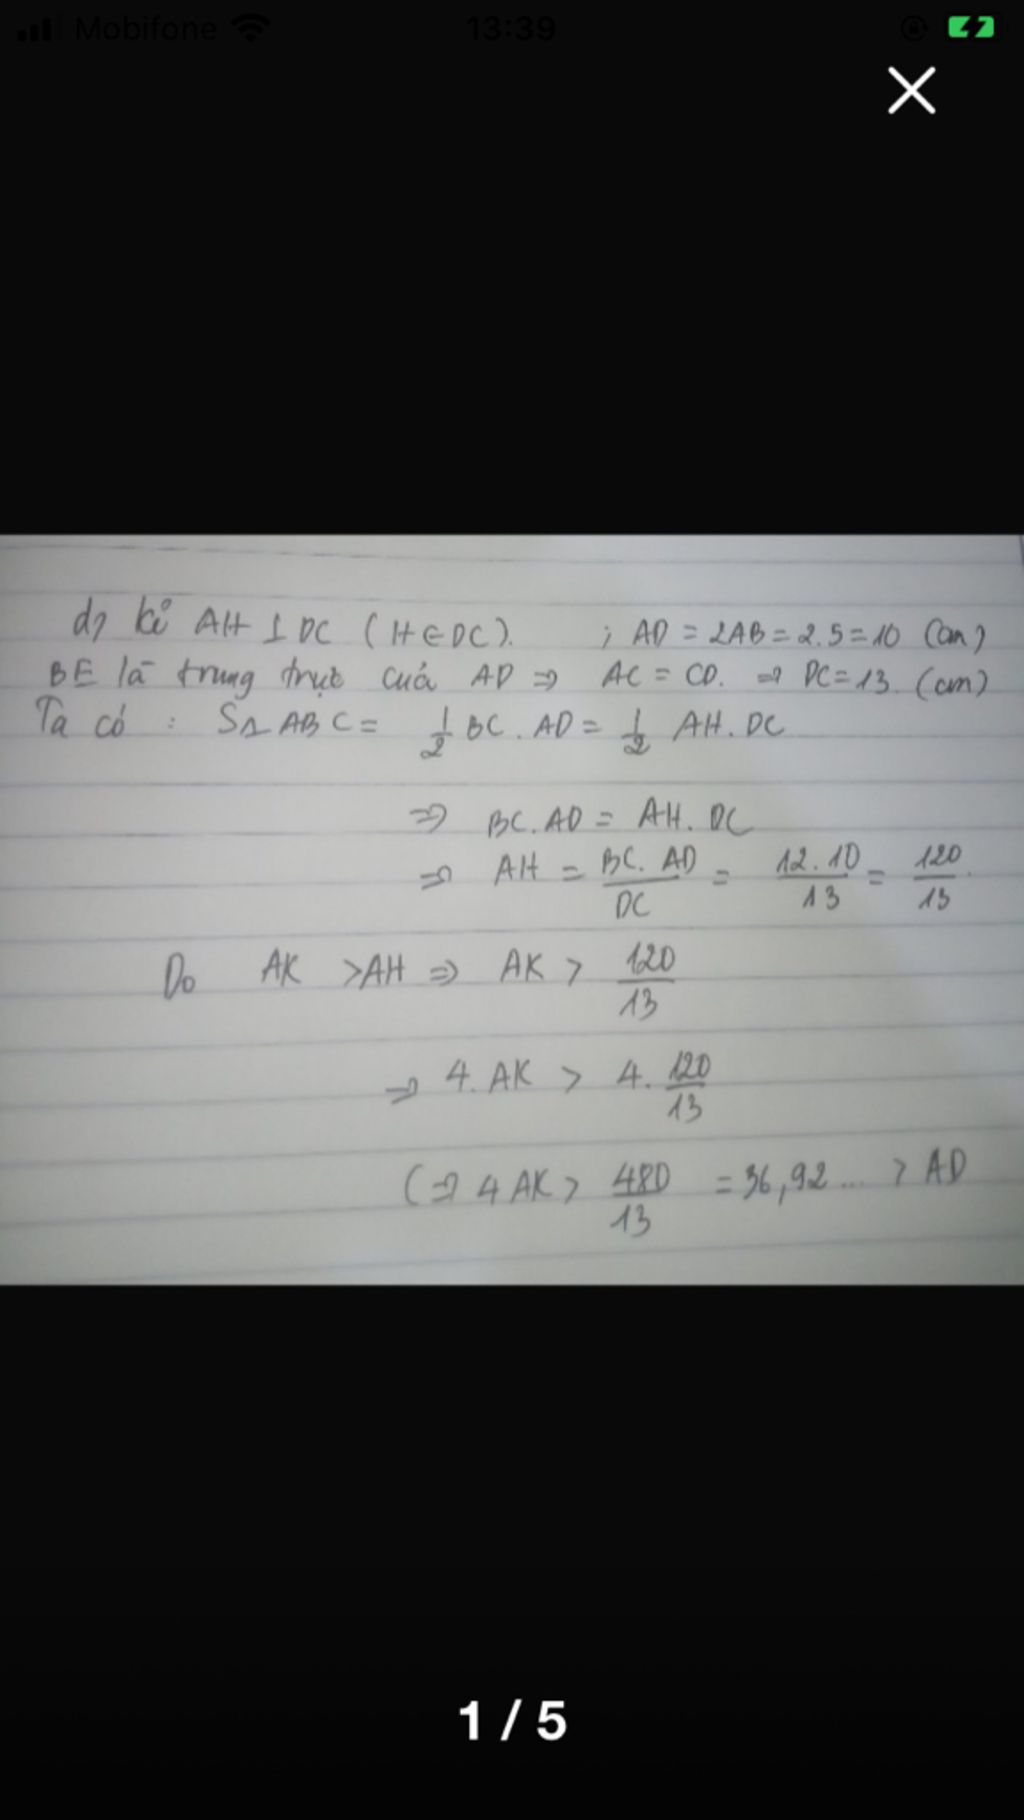 Mobifone 13:39
d) kẻ AH ⊥ DC (H ∈ DC). ; AD = 2AB = 2.5 = 10 (cm)
BE là trung trực của AD ⇒ AC = CD. ⇒ DC = 13. (cm)
Ta có : SΔABC = 1/2 BC. AD = 1/2 AH. DC
⇒ BC. AD = AH. DC
⇒ AH = BC. AD/DC = 12.10/13 = 120/13.
Do AK > AH ⇒ AK > 120/13
⇒ 4. AK > 4. 120/13
(⇒ 4AK > 480/13 = 36,92... > AD
1 / 5